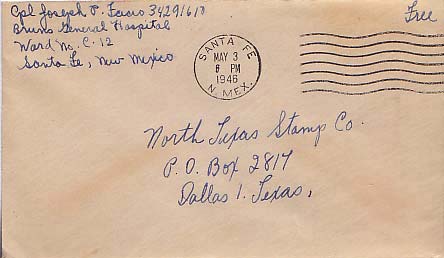 Cpl Joseph P. Faiio 34291618 Free
Bruns General Hospital
Ward No. C-12
Santa Fe, New Mexico
SANTA FE
MAY 3
6 PM
1946
N. MEX.
North Texas Stamp Co.
P.O. Box 2817
Dallas 1. Texas,